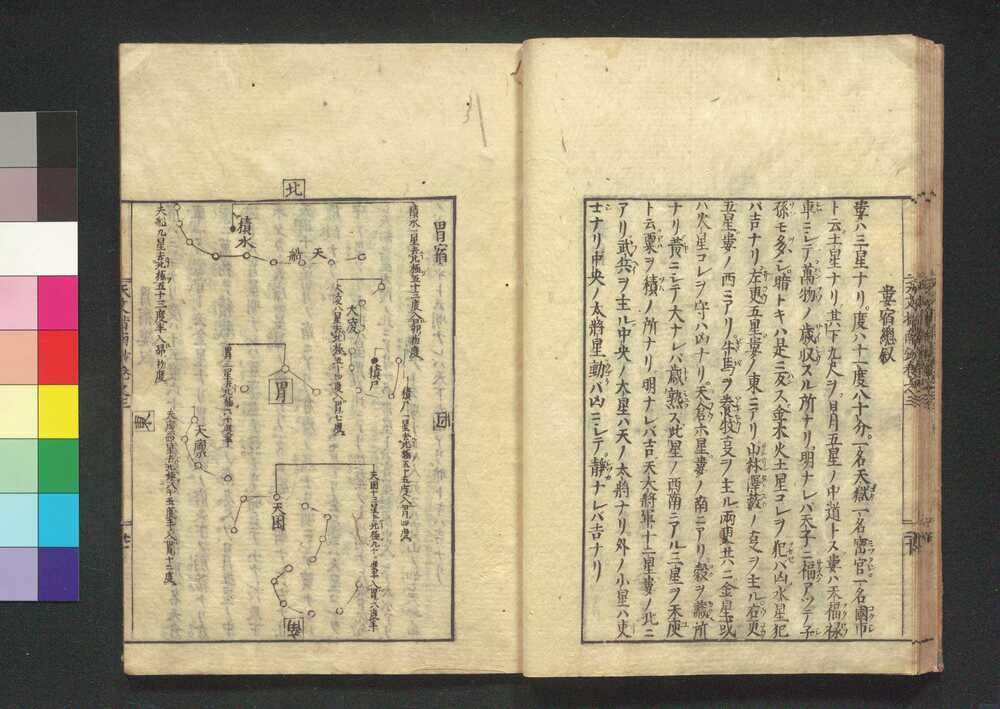 婁宿總叙
婁ハ三星ナリ度ハ十一度八十分一名天獄一名密官一名國市
ト云土星ナリ其下九尺ヲ日月五星ノ中道トス婁ハ天福禄
車ニシテ萬物ノ歳収スル所ナリ明ナレバ天子ニ福アツテ子
孫モ多シ暗トキハ是ニ反ス金木火土星コレヲ犯バ凶水星犯
バ吉ナリ左更五星婁ノ東ニアリ山林澤藪ノ㕝ヲ主ル右更
五星婁ノ西ニアリ牛馬ヲ養牧㕝ヲ主ル両更共ニ金星或
ハ火星コレヲ守ハ凶ナリ天倉六星婁ノ南ニアリ穀ヲ蔵所
ナリ黄ニシテ大ナレバ歳熟ス此星ノ西南ニアル三星ヲ天庾
ト云粟ヲ積ノ所ナリ明ナレバ吉天大将軍十二星婁ノ北ニ
アリ武兵ヲ主ル中央ノ大星ハ天ノ大将ナリ外ノ小星ハ吏
士ナリ中央ノ大將星動バ凶ニシテ靜ナレバ吉ナリ
胃宿
北
積水一星去北極五十三度入昴初度
積水
天舩
天舩九星去北極五十三度半入昴初度
大陵
大陵八星去北極五十四度入胃七度
積尸
積尸一星去北極五十五度入胃四度
胃
胃三星去北極六十度半
西
東
天廩
天廩四星去北極八十五度半入胃十二度
天囷
天囷十三星去北極九十一度半入胃六度半